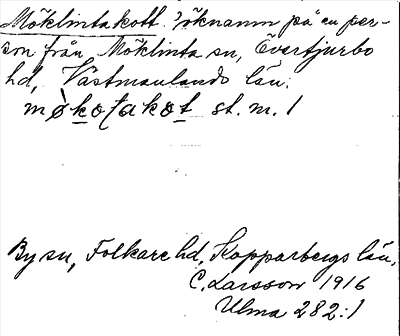 Möklintakott. Öknamn på en per-
son från Möklinta sn, Övertjurbo
hd, Västmanlands län.
st. m. 1
By sn, Folkare hd, Kopparbergs län,
C. Larsson 1916
Ulma 282:1